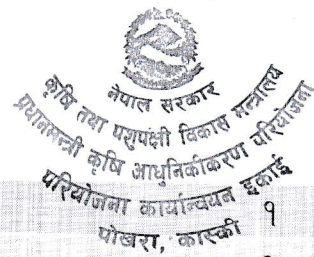 नेपाल सरकार
कृषि तथा पशुपंक्षी विकास मन्त्रालय
प्रधानमन्त्री कृषि आधुनिकीकरण परियोजना
परियोजना कार्यान्वयन इकाई
पोखरा, कास्की
१